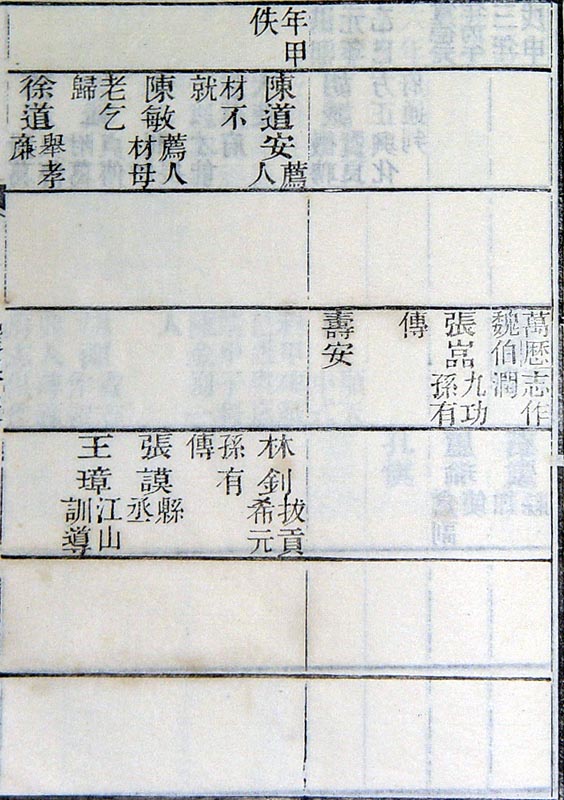 年甲
佚
陳道安薦人
材不
就
陳敏薦人材母
老乞
歸
徐道舉孝廉
萬歷志作
魏伯潤
張嵓九功孫有
傳
壽安
林釗拔貢希元
孫有
傳
張謨縣丞
王璋江山訓導